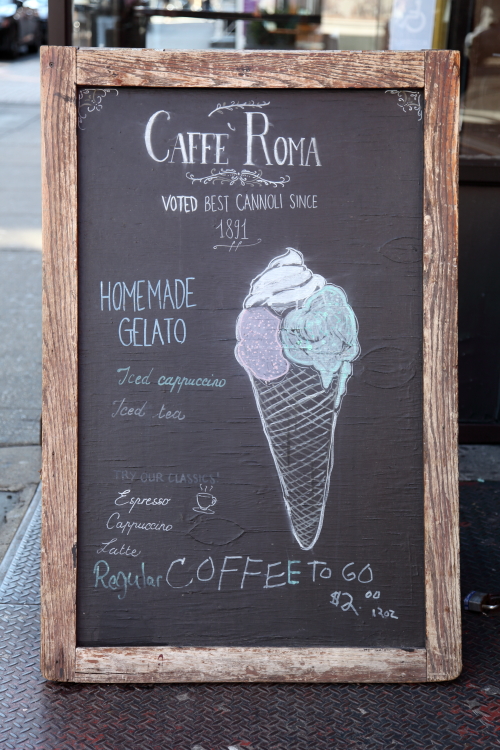 CAFFÈ ROMA
VOTED BEST CANNOLI SINCE
1891
HOMEMADE
GELATO
Iced cappuccino
Iced tea
TRY OUR CLASSICS!
Espresso
Cappuccino
Latte
Regular COFFEE TO GO
$2.00 12oz